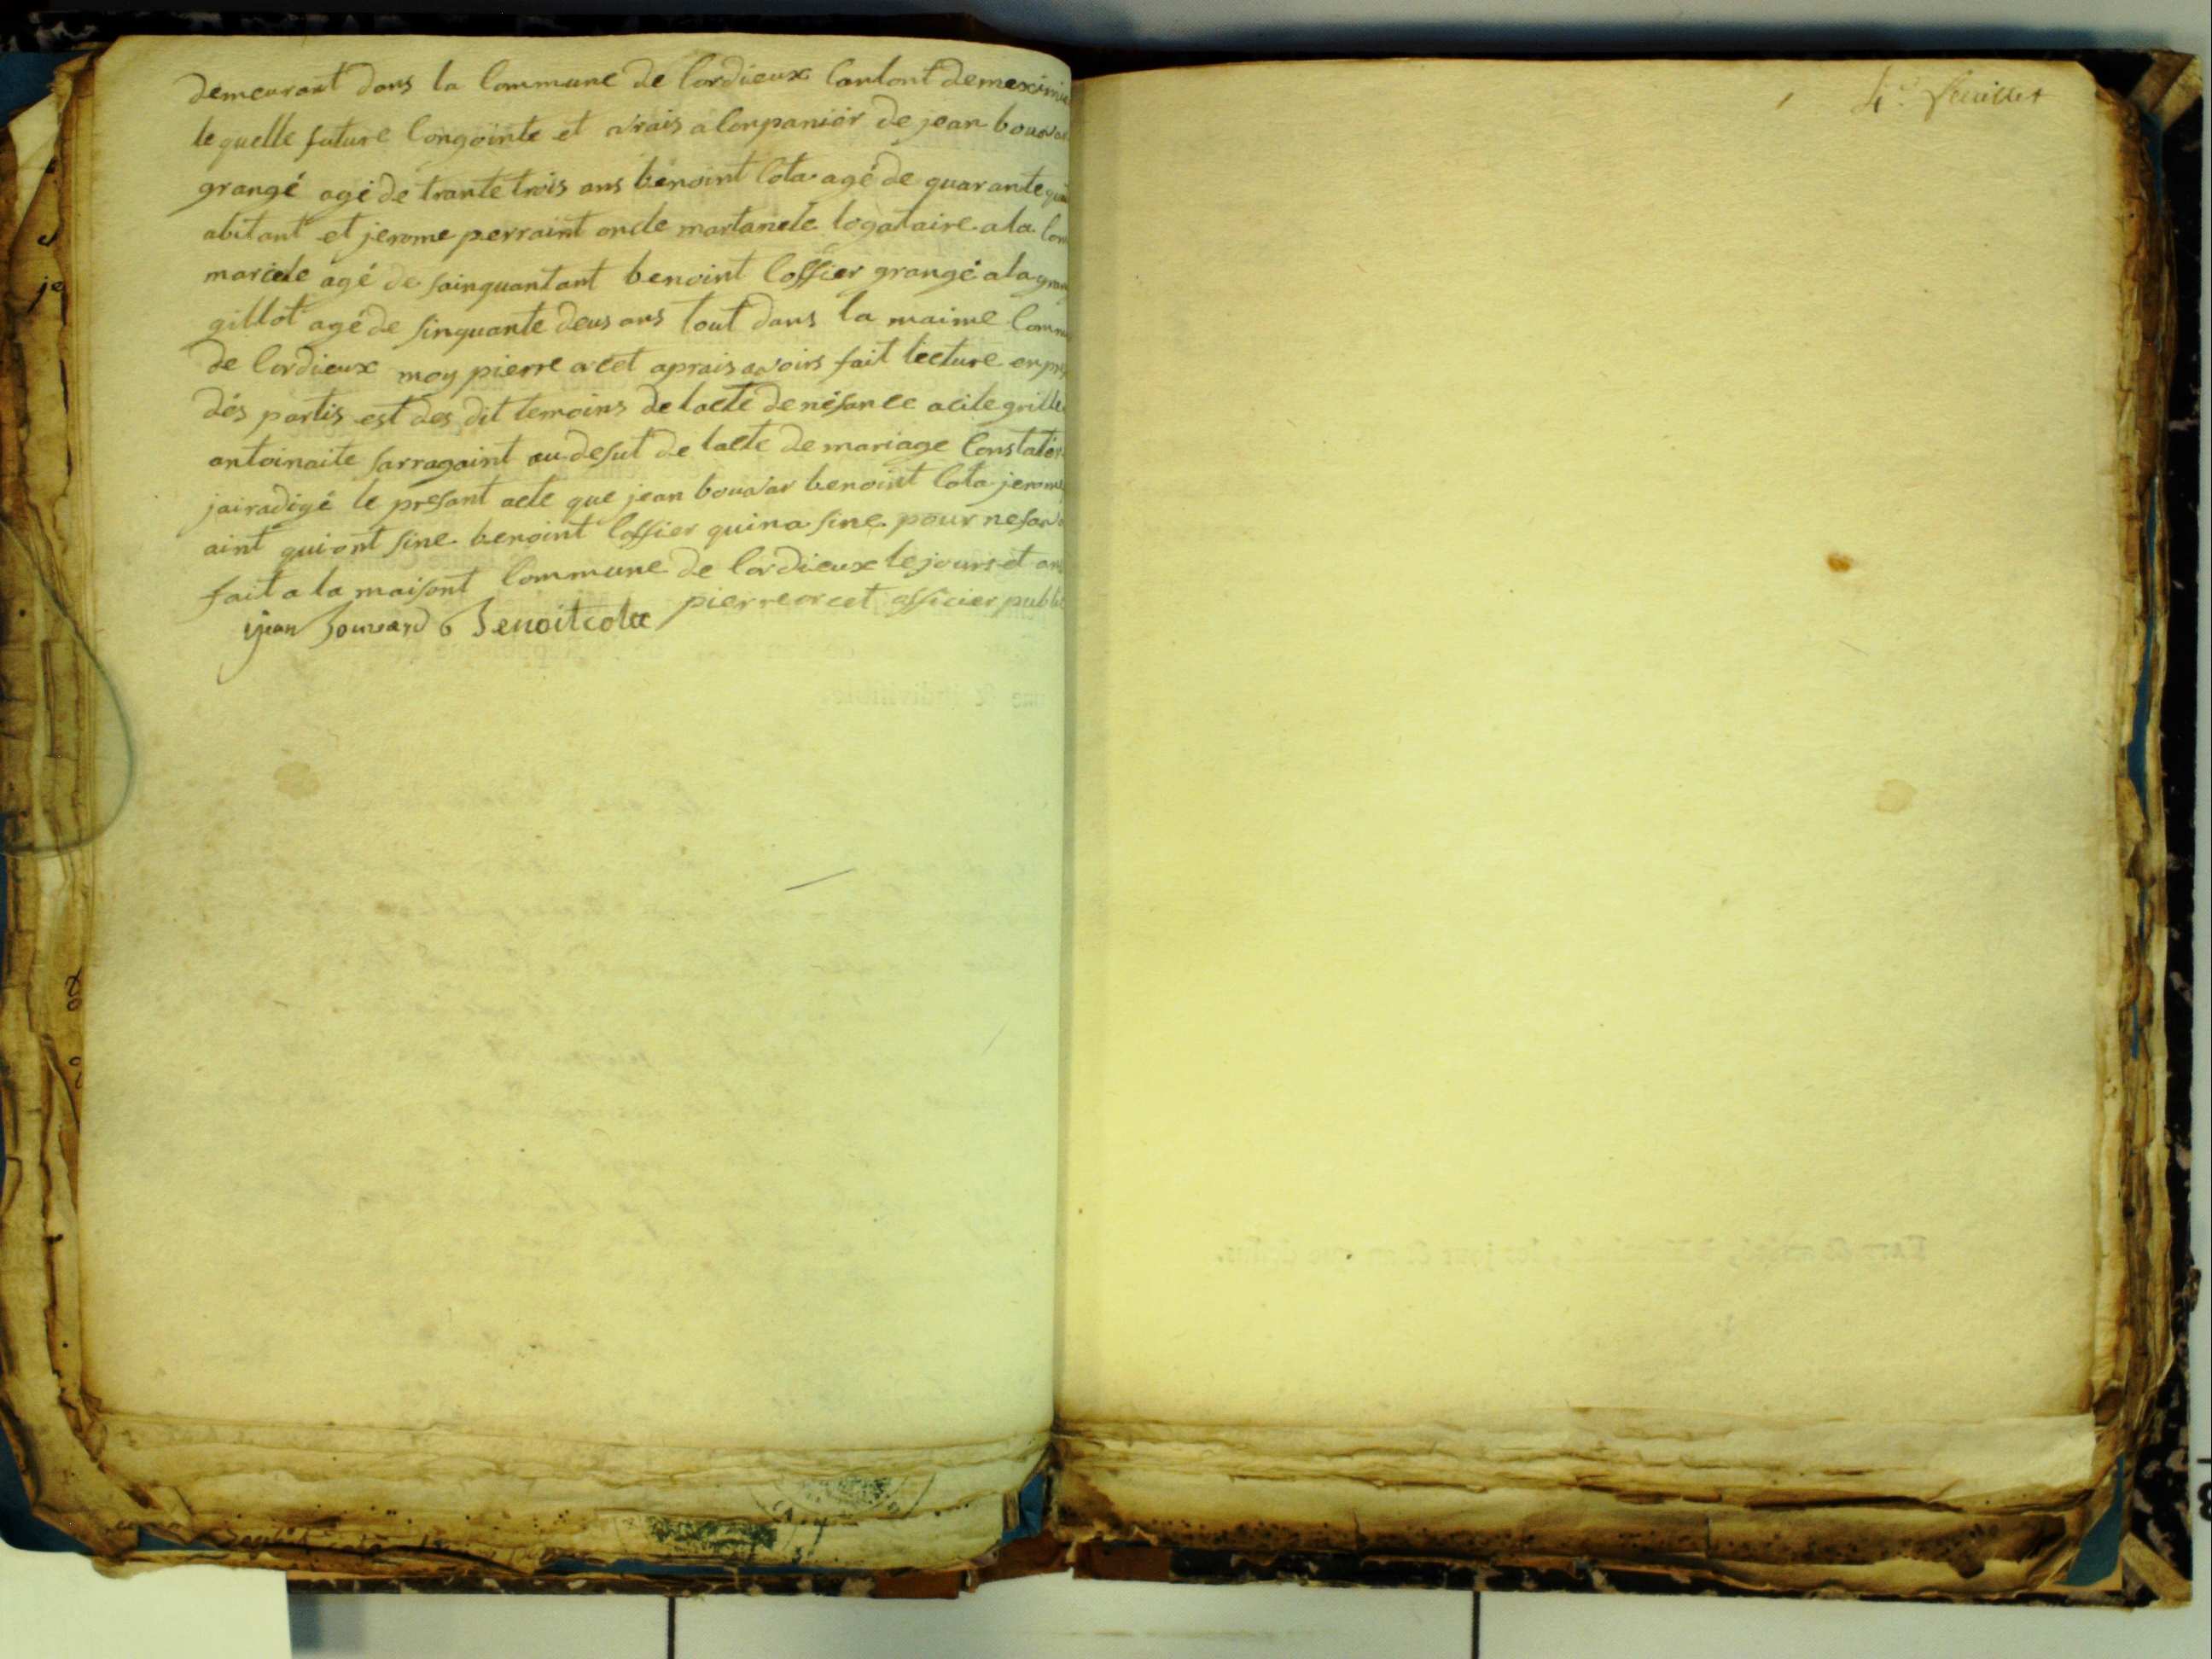 demeurant dans la Commune de Cordieux Cantont demeximie
lequelle future Congointe et avrais aConpanier de jean bouvar
grangé agé de trante trois ans benoint Cota agé de quarante
abitant et jerome perraint oncle martanele logataire a la
mariele agé de sainquantant benoint Cossier grangé a la
gillot agé de sinquante deus ans tout dans la maime Comm
de Cordieux moy pierre orcet aprais avoirs fait lecture en
dés partis est des dit temoins de lacte de nésance
antoinaite sarragoint au desut de lacte de mariage Constater
jairadigé le presant acte que jean bouvar benoint Cota jerome
aint quiont sine benoint Cossier quina sine pour nesav
fait a la maisont Commune de Cordieux le jours et an
pierre orcet officier public
jean Bouvard Benoit cota
4.e feuillet